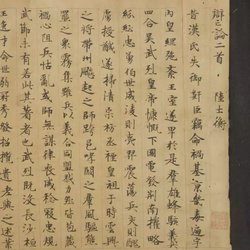 辯亡論二首 陸士衡
昔漢氏失御姦臣竊命禍基京畿毒遍宇
內皇綱弛紊王室遂卑於是群雄蜂駭義兵
四合吳武烈皇帝慷慨下國電發荊南權略
紛紜忠勇伯世威稜則夷羿震盪兵交則醜
虜授馘遂掃清宗祊蒸禋皇祖于時雲興
之將帶州飈起之師跨邑哮闞之群風驅熊
羆之衆霧集雖兵以義合同盟戮力然皆苞藏
禍心阻兵怙亂或師無謀律喪威稔寇忠規
武節未有若此其著者也武烈既沒長沙桓
王逸才命世弱冠秀發招攬遺老與之述業